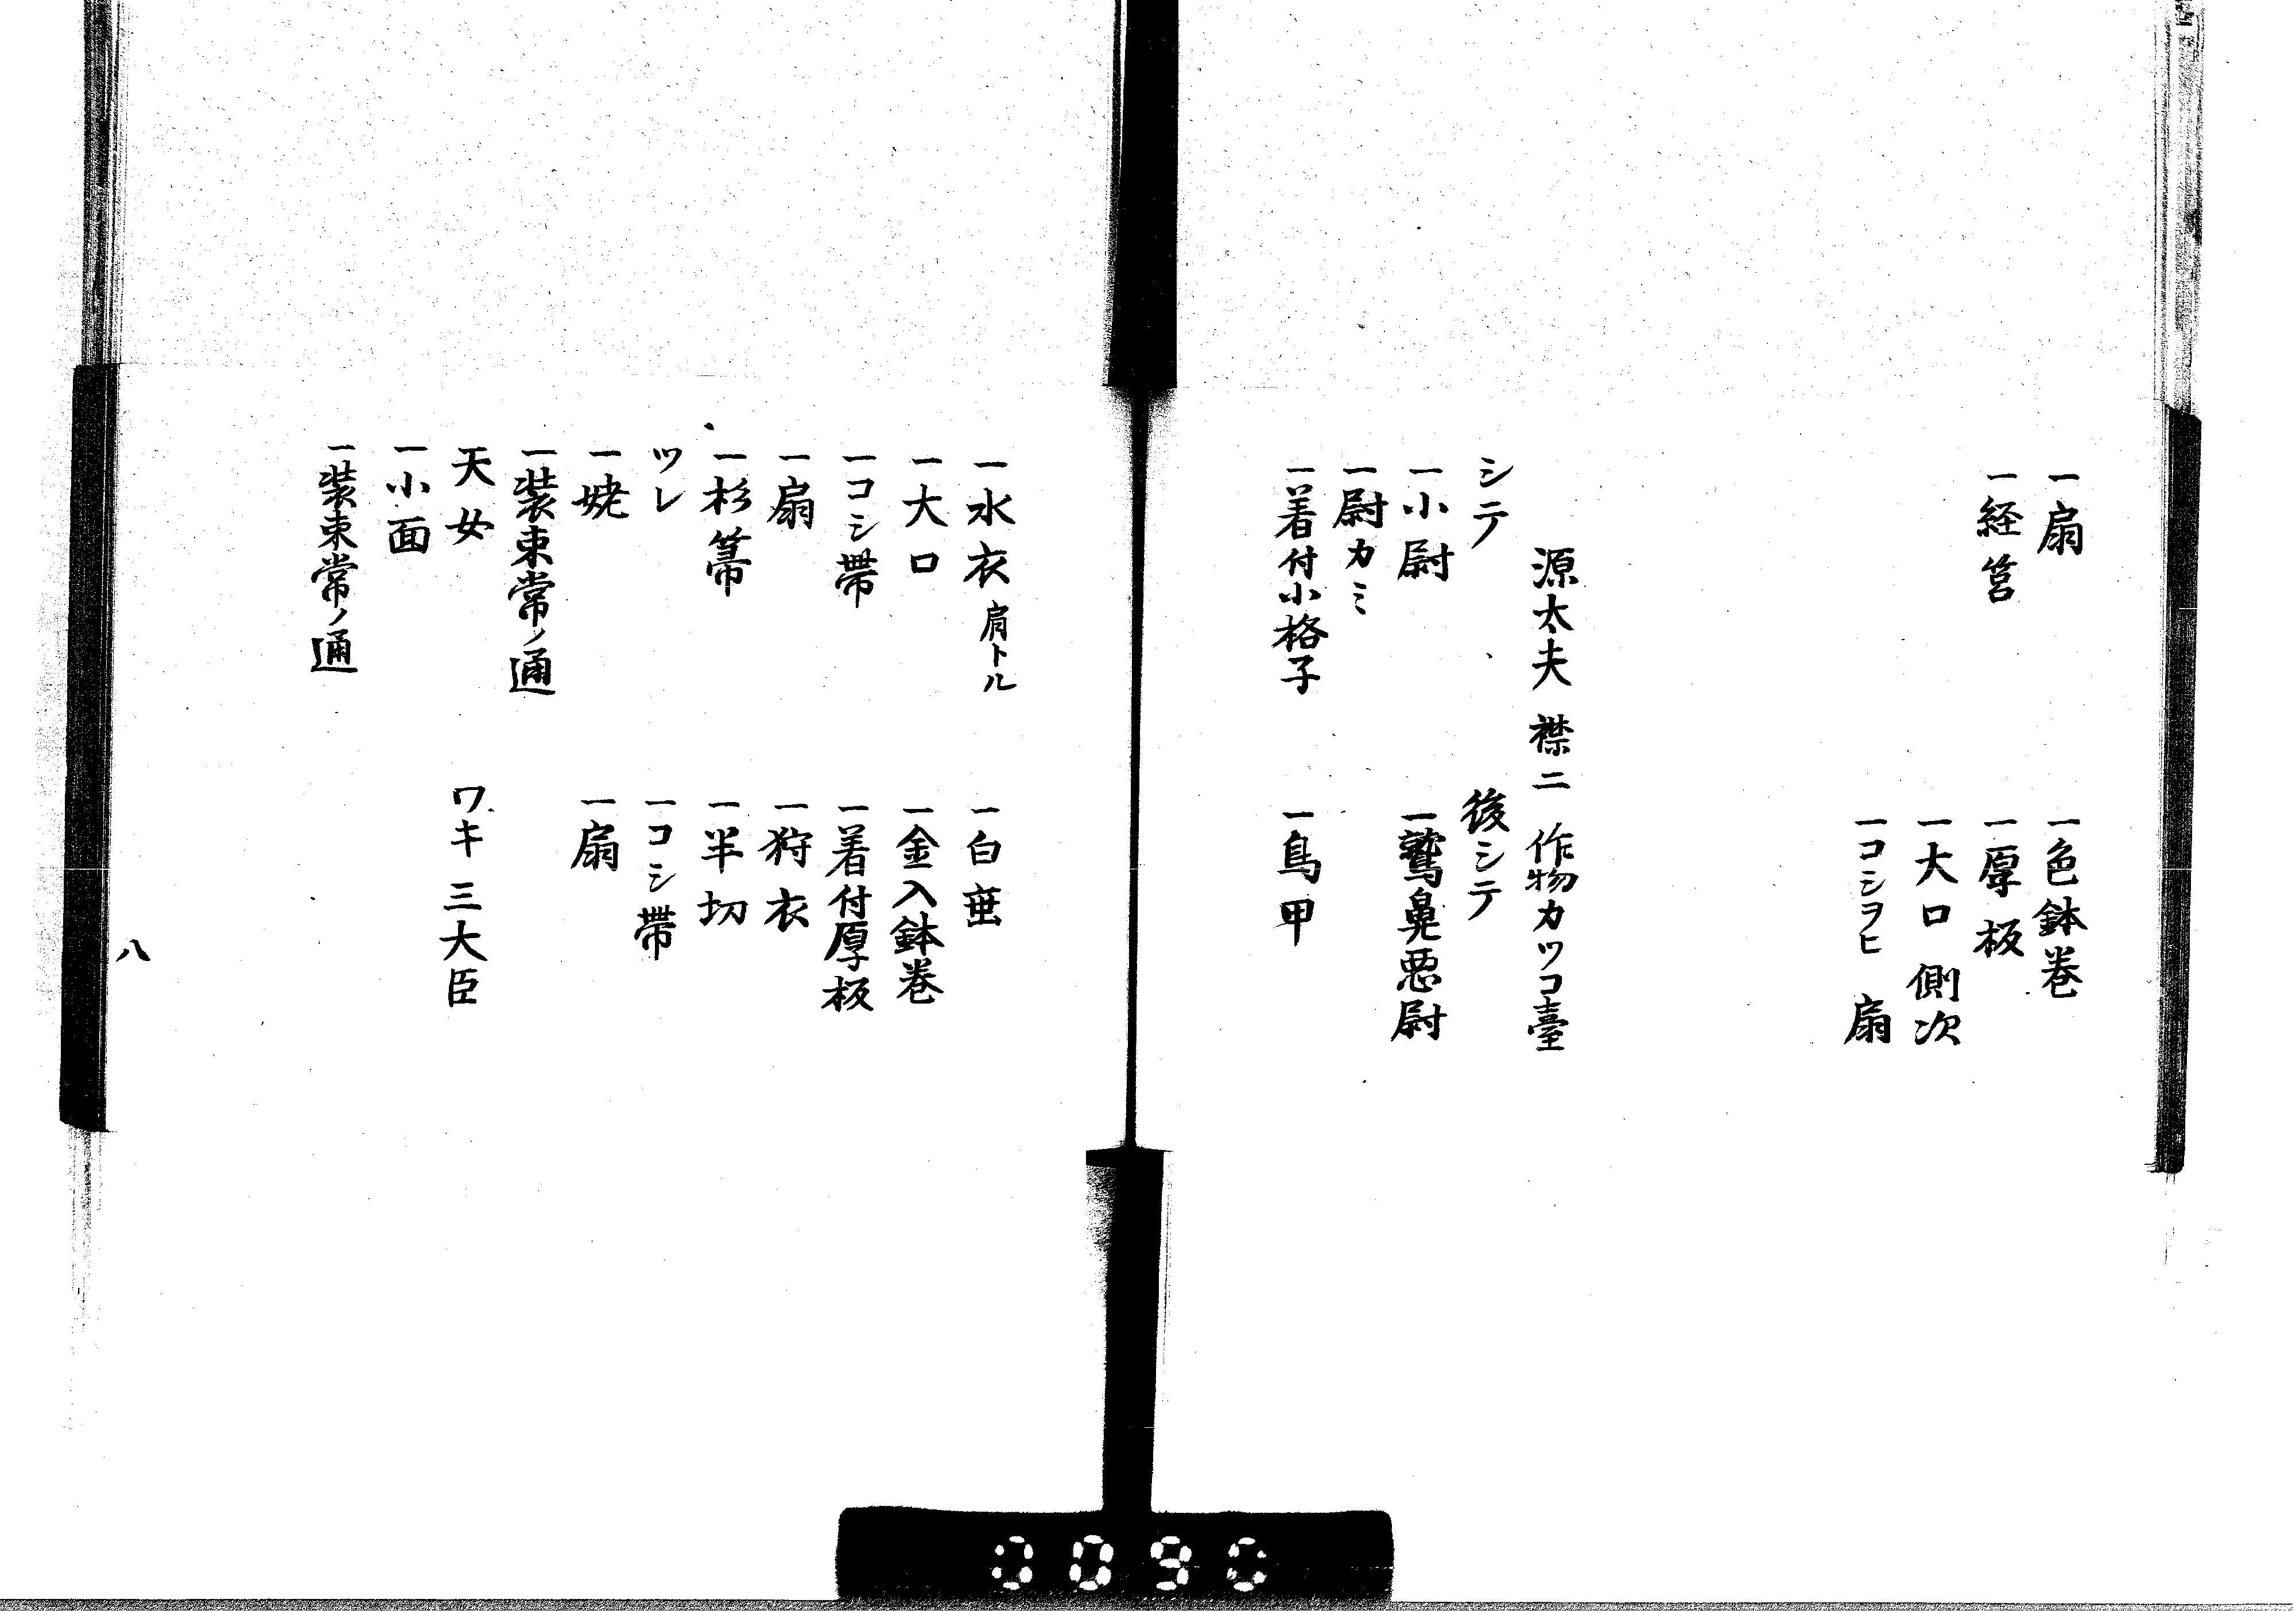 一扇
一経筥
一色鉢巻
一厚板
一大口 側次
一コシヲヒ 扇
源太夫 襟二 作物カツコ臺
シテ
一小尉
一尉カミ
一着付小格子
後シテ
一鷲鼻悪尉
一鳥甲
一水衣 肩トル
一大口
一コシ帯
一扇
一杉箒
ツレ
一姥
一装束常ノ通
天女
一小面
一装束常ノ通
一白垂
一金入鉢巻
一着付厚板
一狩衣
一半切
一コシ帯
一扇
ワキ 三大臣
八
0090